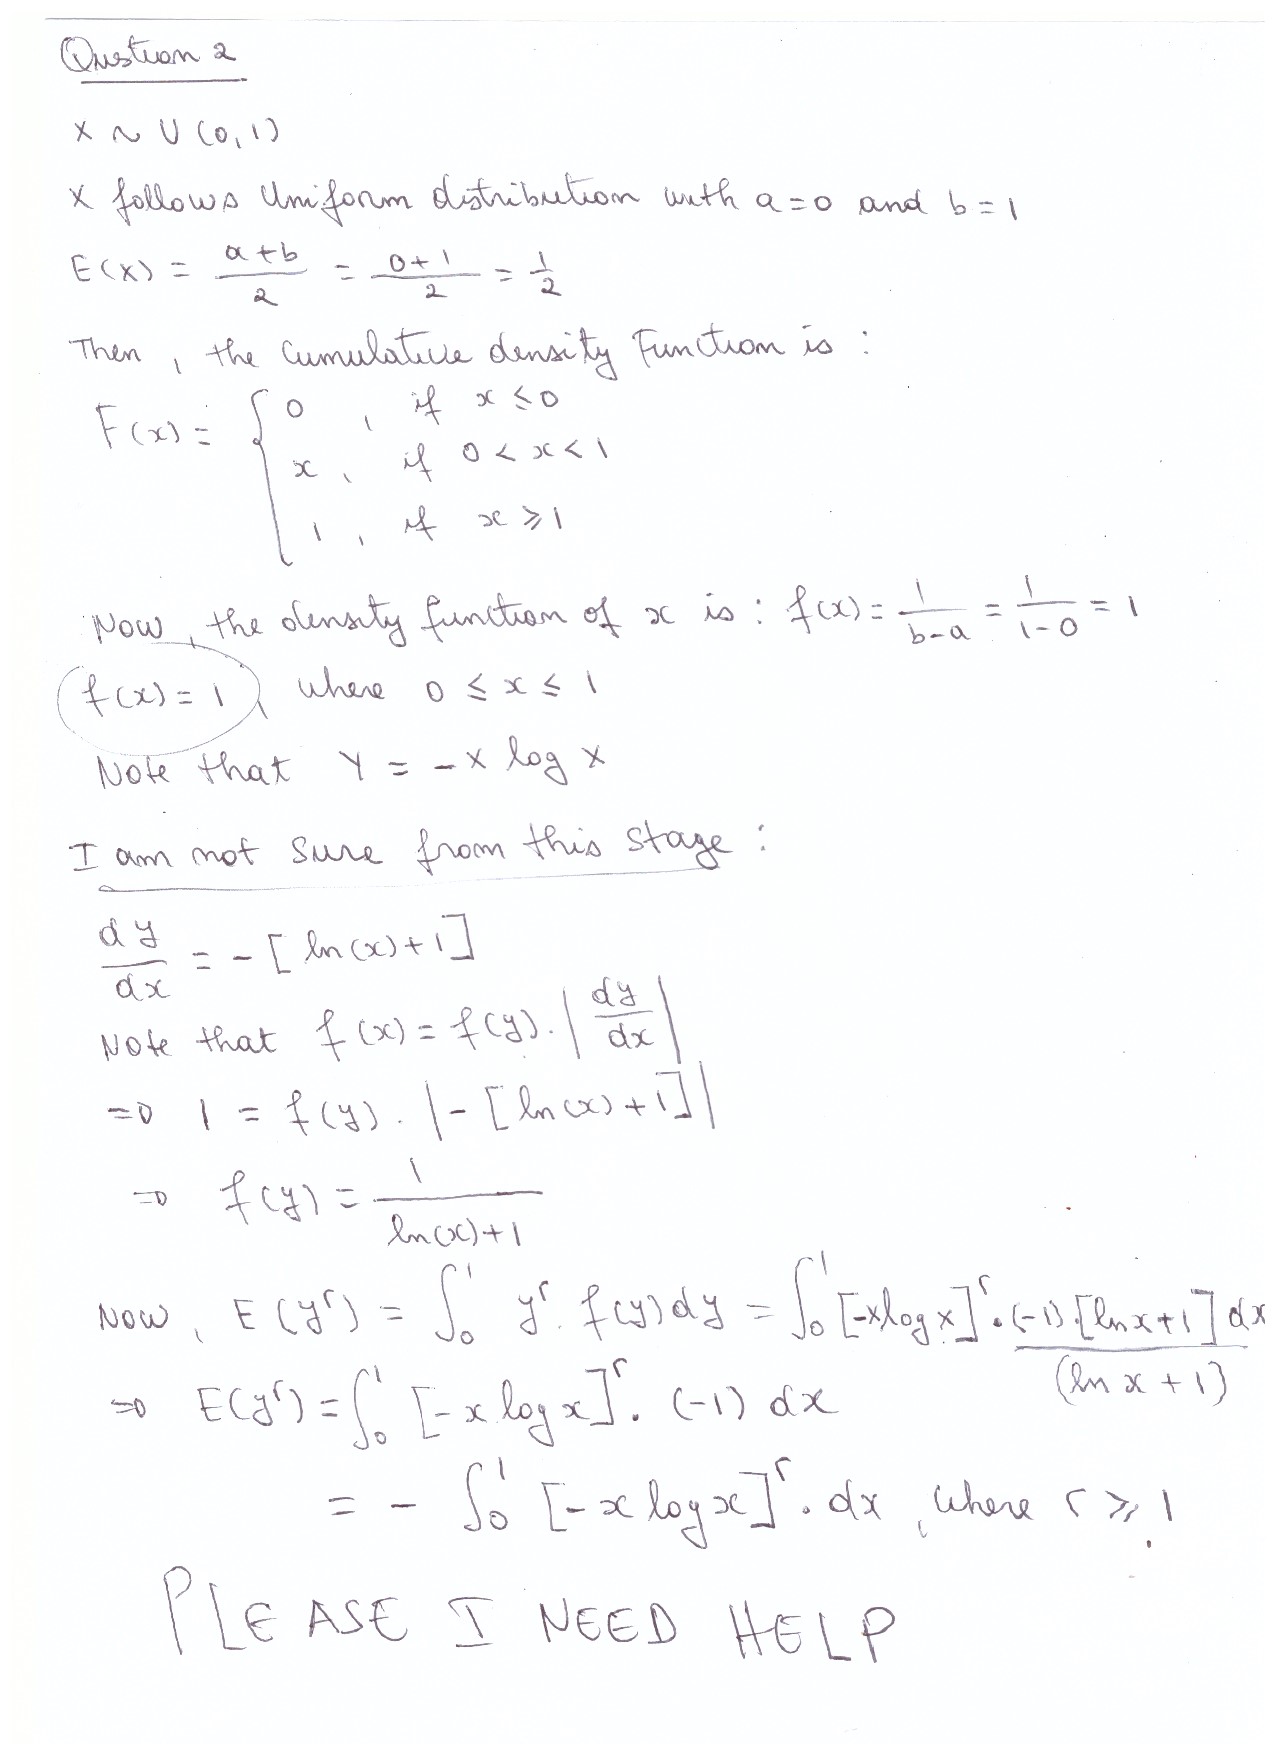 Question 2
X ~ U (0, 1)
X follows Uniform distribution with a = 0 and b = 1
E(X) = (a+b)/2 = (0+1)/2 = 1/2
Then, the Cumulative density Function is :
F(x) = { 0 , if x ≤ 0
x , if 0 < x < 1
1 , if x ≥ 1
Now, the density function of x is : f(x) = 1/(b-a) = 1/(1-0) = 1
f(x) = 1, where 0 ≤ x ≤ 1
Note that Y = - X log X
I am not sure from this stage :
dy/dx = - [ ln(x) + 1 ]
Note that f(x) = f(y) . | dy/dx |
⇒ 1 = f(y) . | - [ ln(x) + 1 ] |
⇒ f(y) = 1/(ln(x)+1)
Now, E(y^r) = ∫_0^1 y^r . f(y) dy = ∫_0^1 [-x log x]^r . (-1) . [ln x + 1] dx / (ln x + 1)
⇒ E(y^r) = ∫_0^1 [-x log x]^r . (-1) dx
= - ∫_0^1 [-x log x]^r . dx , where r ≥ 1
PLEASE I NEED HELP